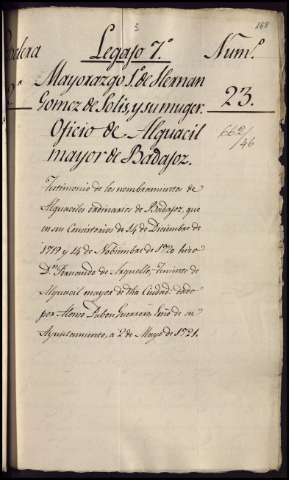 3
168
Legajo 7.º Num.º
Mayorazgo 1.º de Hernan
Gomez de Solis, y su muger. 23.
Oficio de Alguacil 662/46
mayor de Badajoz.
Testimonio de los nombramientos de
Alguaciles ordinarios de Badajoz, que
en sus Consistorios de 14 de Diciembre de
1719 y 14 de Nobiembre de 1720 hizo
D.n Fernando de Arguello, Teniente de
Alguacil mayor de dha Ciudad: dado
por Alonso Guerrero, Esno de su
Ayuntamiento, a 2 de Mayo de 1721.